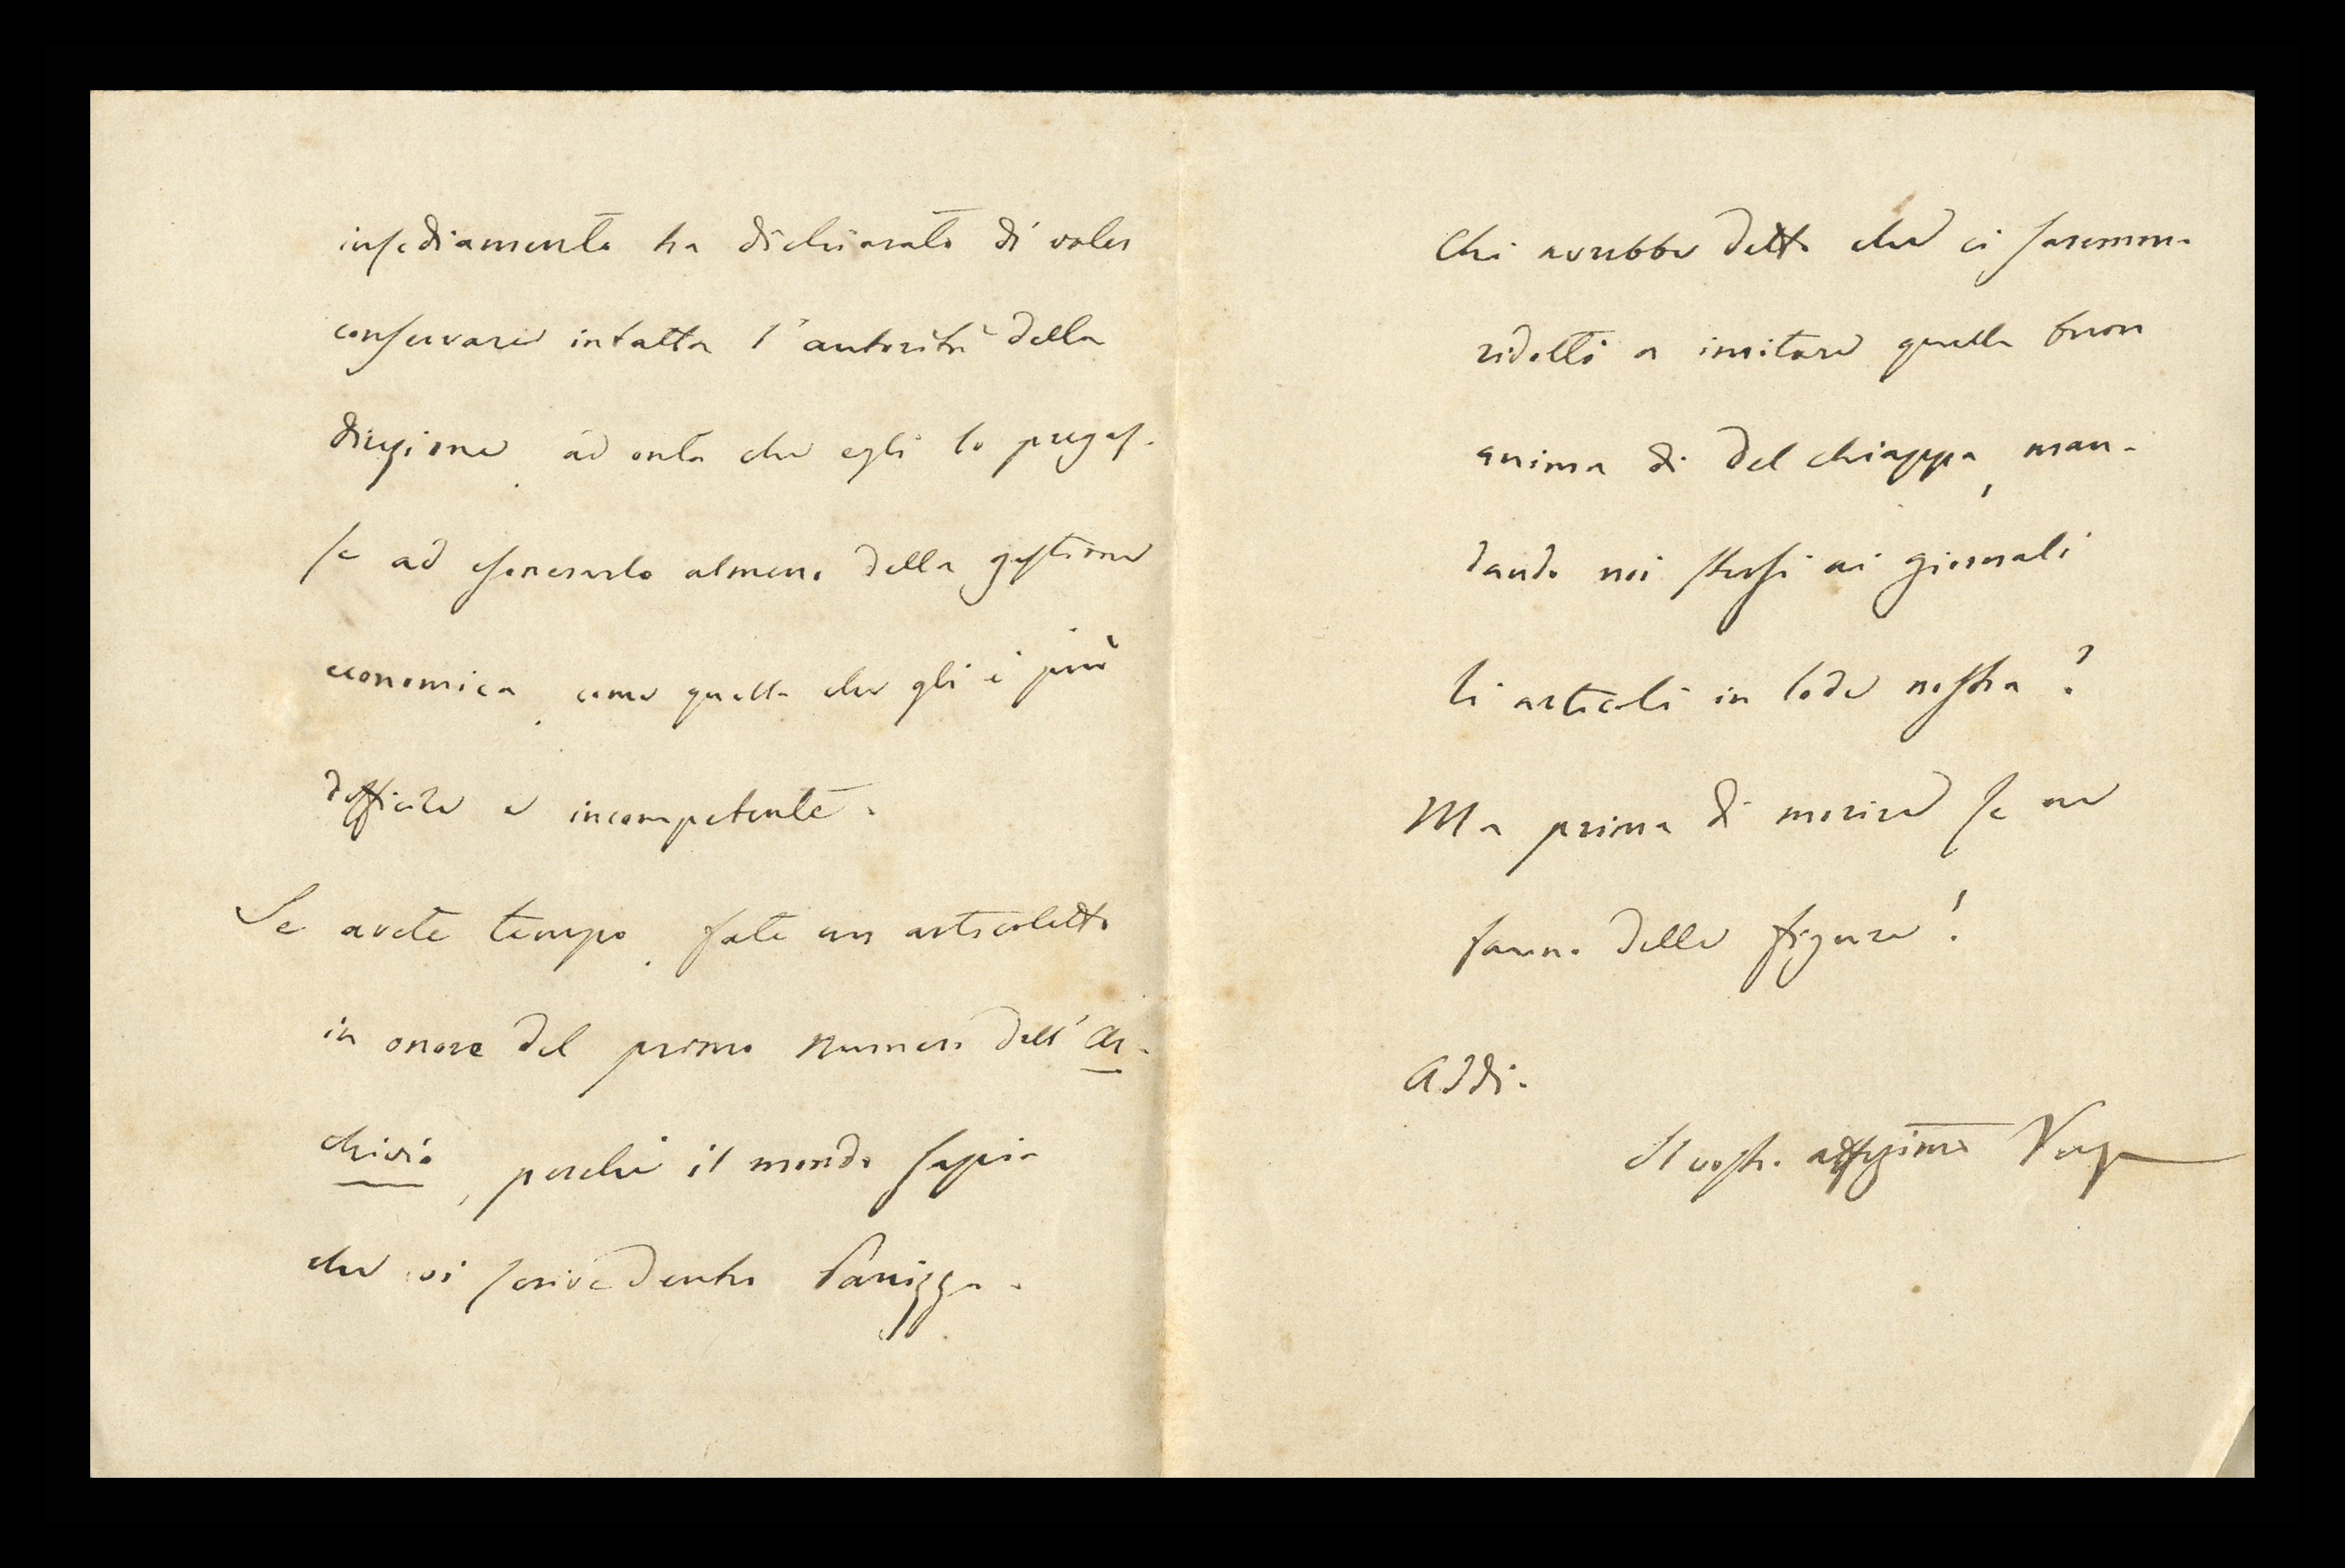 insediamento ha dichiarato di voler
conservare intatta l'autorità della
direzione, ad onta che egli lo pregas-
se ad esonerarlo almeno della gestione
economica, come quella che gli è più
difficile e incompetente.
Se avete tempo, fate un articoletto
in onore del primo numero dell'Ar-
chivio, perchè il mondo sapia
che vi scrive dentro Panizza.
Chi avrebbe detto che ci saremmo
ridotti a imitare quella buon
anima di Del Chiappa, man-
dando noi stessi ai giornali
li articoli in lode nostra?
Ma prima di morire se ne
fanno delle figure!
Addio.
Il vostro affezimo Verga